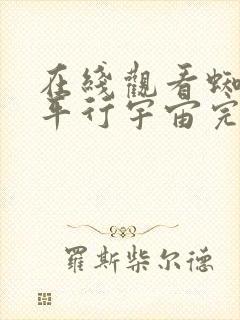 在綫觀看蜘
平行宇宙完
羅斯柴尔德